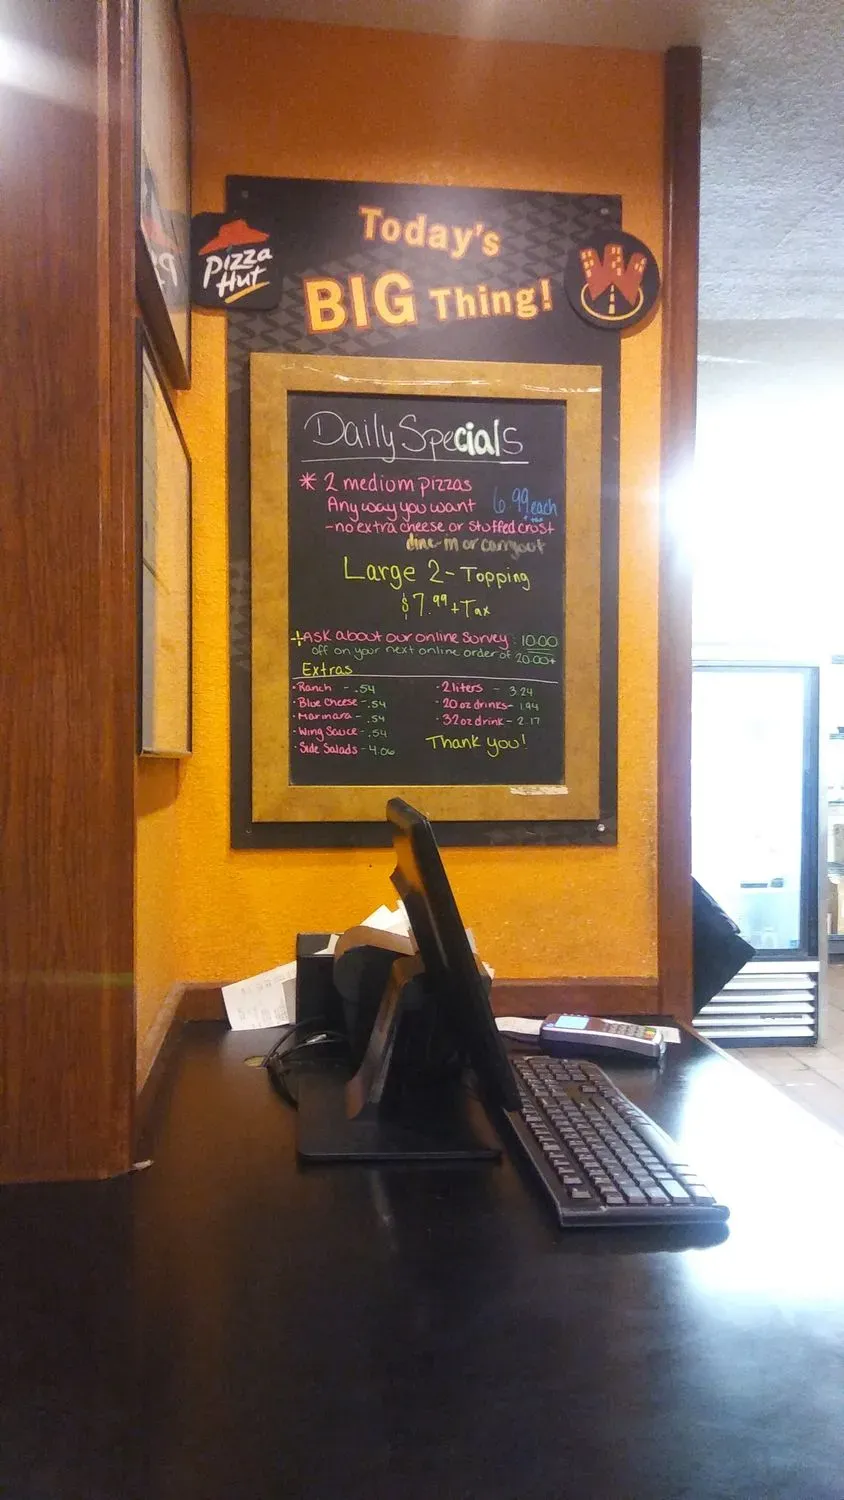 Today's
BIG Thing!
Pizza
Hut
W
Daily Specials
* 2 medium pizzas
Any way you want 6.99 each
+ tax
- no extra cheese or stuffed crust
dine-in or carryout
Large 2 - Topping
$7.99 + Tax
Ask about our online Survey: 10.00
off on your next online order of 20.00+
Extras
· Ranch - .54
· Blue Cheese - .54
· Marinara - .54
· Wing Sauce - .54
· Side Salads - 4.06
· 2 liters - 3.24
· 20 oz drinks - 1.94
· 32 oz drink - 2.17
Thank you!